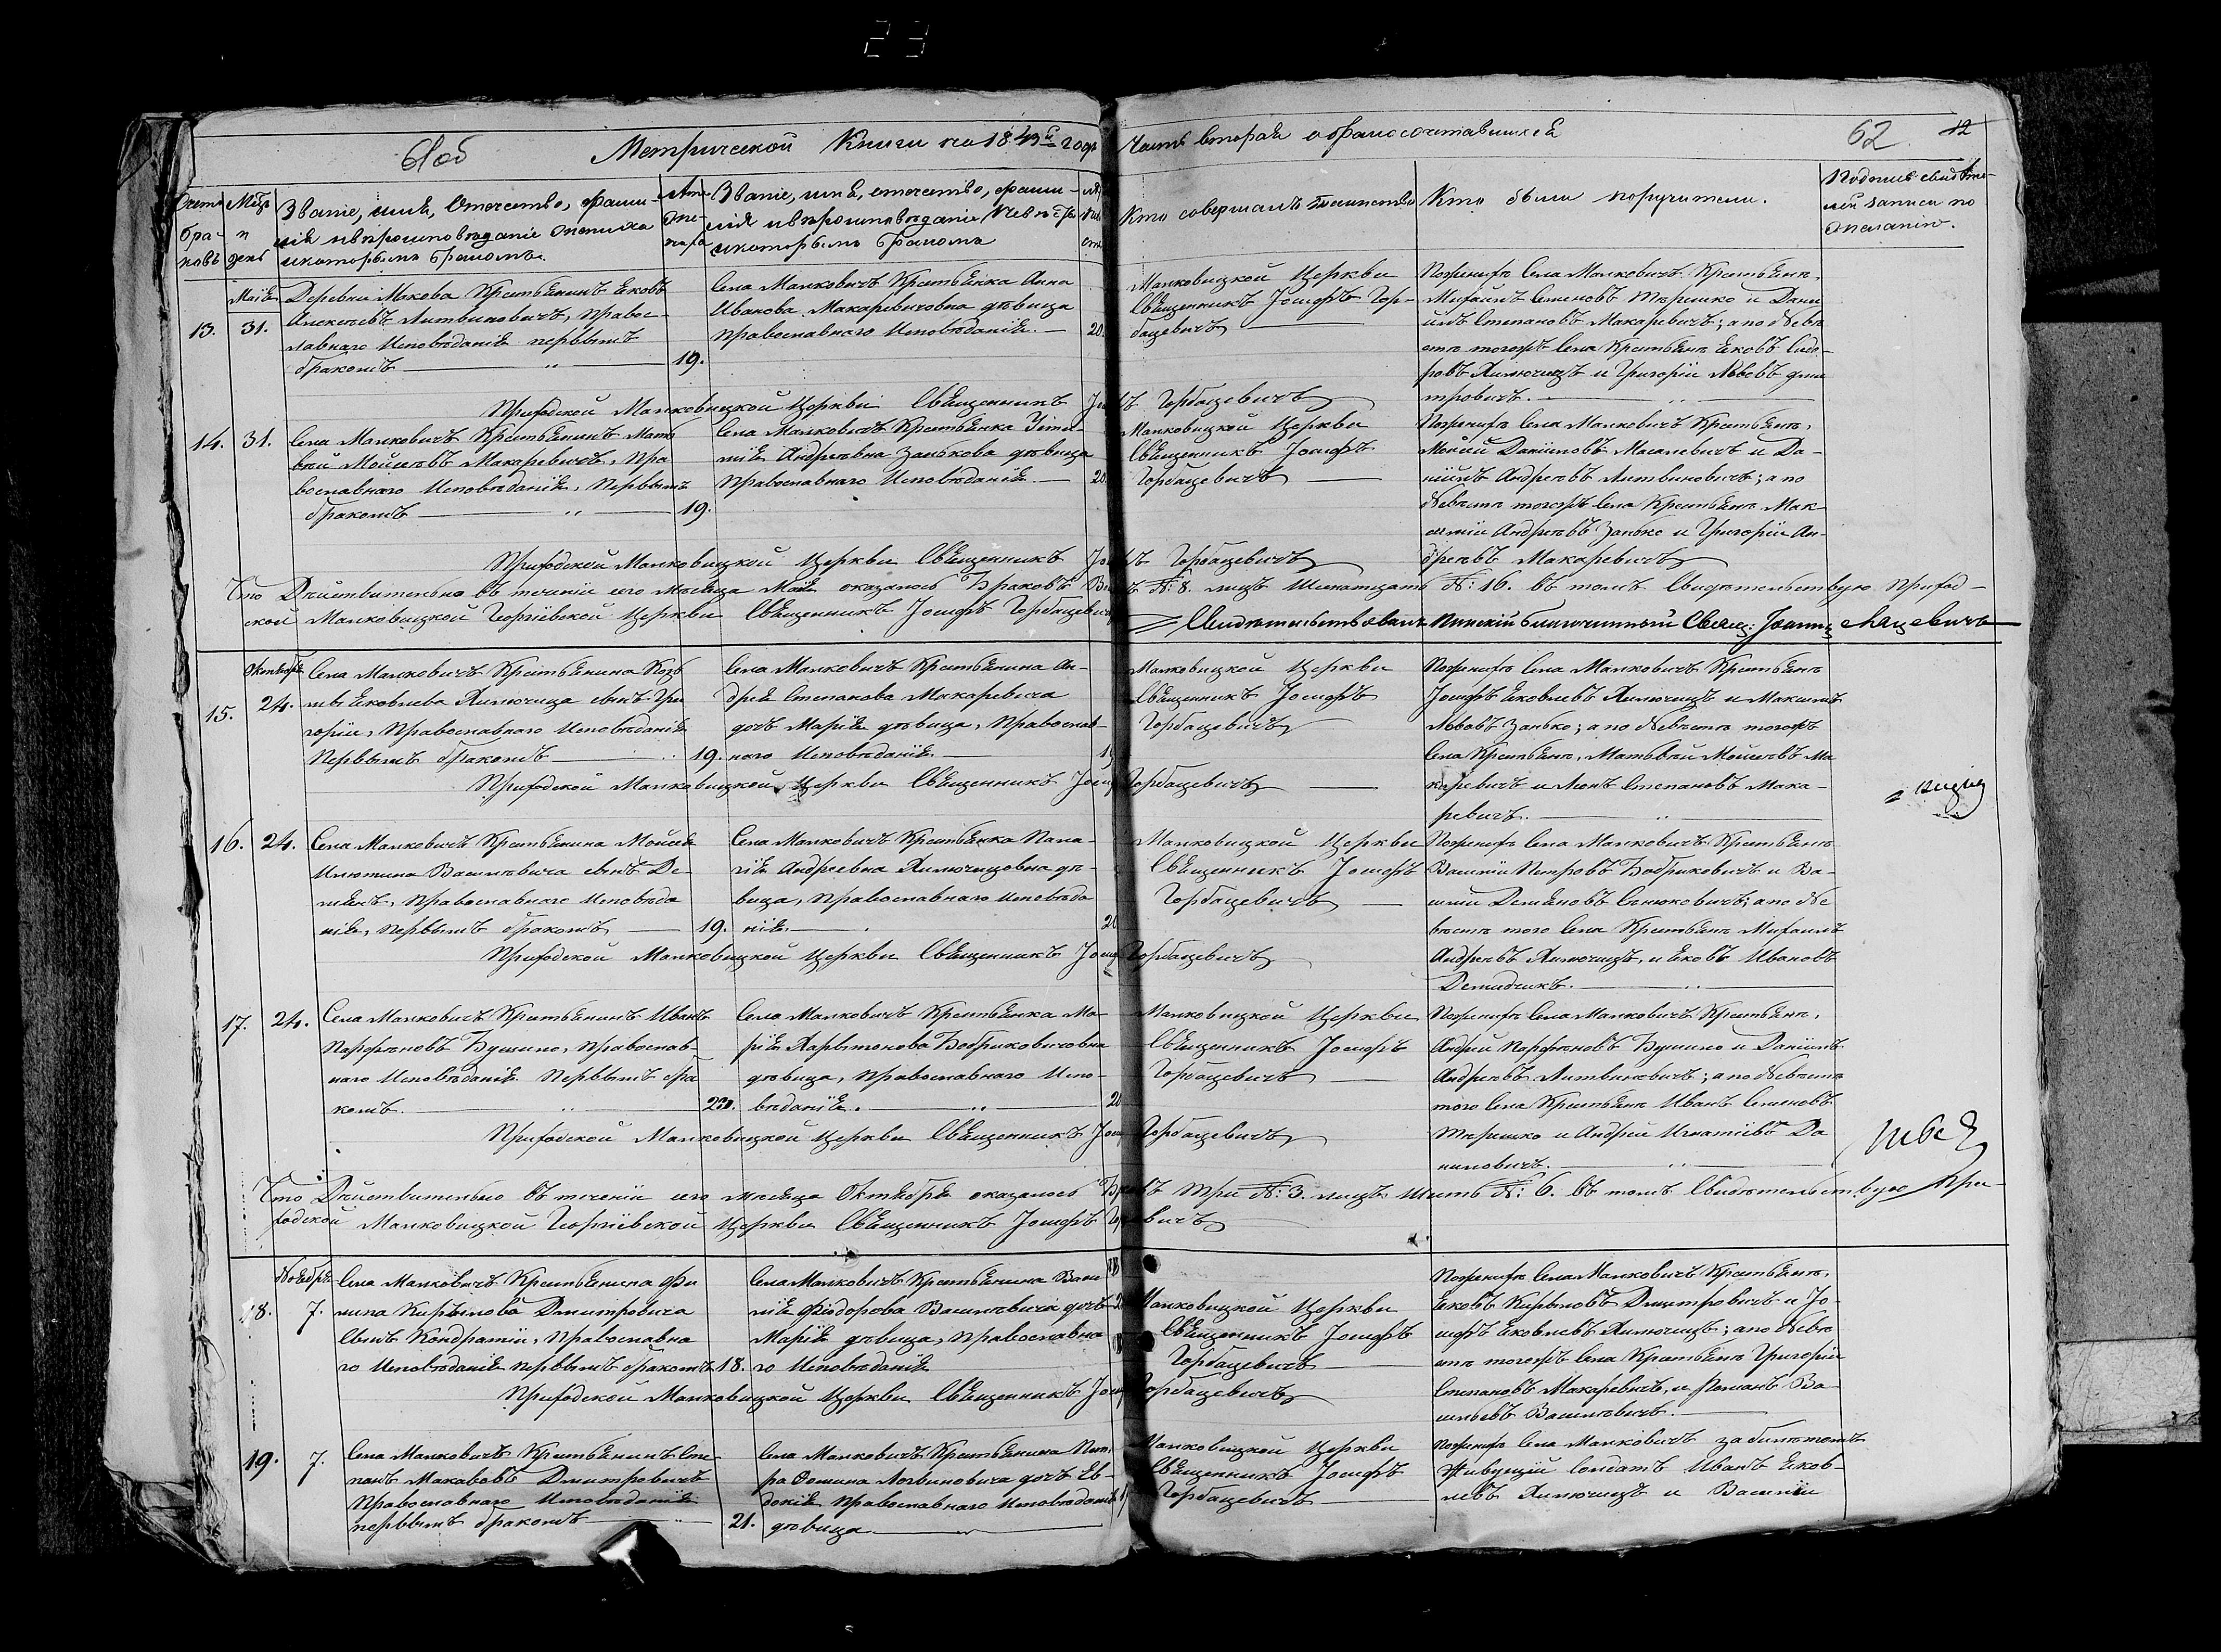 23
61об Метрической Книги на 1849й годъ Часть вторая о бракосочетавшихся 62 12
Счетъ бра-ковъ
Мсцъ и день
Званіе, имя, Отчество, фами-
лія и вѣроисповѣданіе жениха
и которымъ бракомъ.
Лѣта же-ниха
Званіе, имя, отчество, фами-
лія и вѣроисповѣданіе Невѣсты
и которымъ бракомъ
Кто совершалъ таинство
Кто были поручители.
Подпись свидѣте-
лей записи по
желанію.
Маія
13. 31.
Деревни Макова Крестьянинъ Яковъ
Алексѣевъ Литвиновичъ, правос-
лавнаго Исповѣданія первымъ
бракомъ 19.
Села Малковичъ Крестьянка Анна
Иванова Макаревичовна дѣвица
православнаго Исповѣданія. 20.
Малковицкой Церкви
Священникъ Іосифъ Гор-
бацевичъ
По женихѣ Села Малковичъ Крестьяне,
Михаилъ Семеновъ Терешко и Дані
илъ Степановъ Макаревичъ; а по Невѣ
стѣ тогожъ Села Крестьяне Яковъ Сидо-
ровъ Хилючицъ и Григорій Львовъ Дми
тровичъ.
Приходской Малковицкой Церкви Священникъ Горбацевичъ
14. 31.
Села Малковичъ Крестьянинъ Мат
вѣй Мойсѣевъ Макаревичъ, Пра
вославнаго Исповѣданія, Первымъ
бракомъ 19.
Села Малковичъ Крестьянка
Андреевна Занькова дѣвица
Православнаго Исповѣданія. 20.
Малковицкой Церкви
Священникъ Іосифъ
Горбацевичъ
По женихѣ Села Малковичъ Крестьяне,
Мойсій Даніиловъ Масалевичъ и Да-
ніилъ Андреевъ Литвиновичъ; а по
Невѣстѣ тогожъ Села Крестьяне Мак-
симъ Андреевъ Занько и Григорій Ан-
дреевъ Макаревичъ
Приходской Малковицкой Церкви Священникъ Горбацевичъ
Что Дѣйствительно въ теченіи сего Мѣсяца Маія оказалось Браковъ №: 8. лицъ Шестнадцать №: 16. въ томъ Свидѣтельствую Приход-
ской Малковицкой Георгіевской Церкви Священникъ Іосифъ Горбацевичъ
Свидѣтельствовалъ Пинскій благочинный Свящ: Іоаннъ
Октября
15. 24.
Села Малковичъ Крестьянина
Яковлева Хилючица сынъ Гри
горій, Православнаго Исповѣданія
Первымъ бракомъ 19.
Села Малковичъ Крестьянина Ан-
дрея Степанова Макаревича
дочь Марія дѣвица, Православ-
наго Исповѣданія
Малковицкой Церкви
Священникъ Іосифъ
Горбацевичъ
По женихѣ Села Малковичъ Крестьяне
Іосифъ Яковлевъ Хилючицъ и Максимъ
Львовъ Занько; а по Невѣстѣ тогожъ
Села Крестьяне, Матвѣй Мойсѣевъ Ма
каревичъ и Леонъ Степановъ Мака-
ревичъ.
Приходской Малковицкой Церкви Священникъ Горбацевичъ
16. 24.
Села Малковичъ Крестьянина Мойсея
Илютина Василевича сынъ Де-
міянъ, Православнаго Исповѣда
нія, Первымъ бракомъ 19.
Села Малковичъ Крестьянка Пала-
гія Андреевна Хилючицовна дѣ-
вица, Православнаго Исповѣда
нія. 20
Малковицкой Церкви
Священникъ Іосифъ
Горбацевичъ
По женихѣ Села Малковичъ Крестьяне
Василій Петровъ Бобриковичъ и Ва-
силій Деміяновъ Сенюковичъ; а по Не
вѣстѣ того Села Крестьяне Михаилъ
Андреевъ Хилючицъ, и Яковъ Ивановъ
Демидчикъ.
Приходской Малковицкой Церкви Священникъ Горбацевичъ
17. 24.
Села Малковичъ Крестьянинъ Иванъ
Парфеновъ Бушило, Православ-
наго Исповѣданія Первымъ бра
комъ. 20.
Села Малковичъ Крестьянка Ма-
рія Харитонова Бобриковичовна
дѣвица, Православнаго Испо-
вѣданія. 20
Малковицкой Церкви
Священникъ Іосифъ
Горбацевичъ
По женихѣ Села Малковичъ Крестьяне,
Андрей Парфеновъ Бушило и Даніилъ
Андреевъ Литвиновичъ; а по Невѣстѣ
того Села Крестьяне Иванъ Семеновъ
Терешко и Андрей Игнатіевъ Да
ниловичъ.
Приходской Малковицкой Церкви Священникъ Горбацевичъ
Что Дѣйствительно въ теченіи сего мѣсяца Октября оказалось Три №: 3. лицъ Шесть №: 6. въ томъ Свидѣтельствую При-
ходской Малковицкой Георгіевской Церкви Священникъ Іосифъ
Ноября
18. 7.
Села Малковичъ Крестьянина Фи
липа Кирылова Дмитровича
Сынъ Кондратій, Православна
го Исповѣданія первымъ бракомъ 18.
Села Малковичъ Крестьянина Васи
лія Феодорова Василевича дочь
Марія дѣвица, Православна
го Исповѣданія
Малковицкой Церкви
Священникъ Іосифъ
Горбацевичъ
По женихѣ Села Малковичъ Крестьяне,
Яковъ Кирыловъ Дмитровичъ и Іо-
сифъ Яковлевъ Хилючицъ; а по Невѣ
стѣ тогожъ Села Крестьяне Григорій
Степановъ Макаревичъ, и Романъ Ва-
сильевъ Василевичъ.
Приходской Малковицкой Церкви Священникъ Горбацевичъ
19. 7.
Села Малковичъ Крестьянинъ Сте
панъ Макаровъ Дмитровичъ
Православнаго Исповѣданія
первымъ бракомъ 21.
Села Малковичъ Крестьянина Пет
ра Фомина Логвиновича дочь Ев-
докія Православнаго Исповѣданія
дѣвица
Малковицкой Церкви
Священникъ Іосифъ
Горбацевичъ
По женихѣ Села Малковичъ за билетомъ
живущій Солдатъ Иванъ Яков-
левъ Хилючицъ и Василій